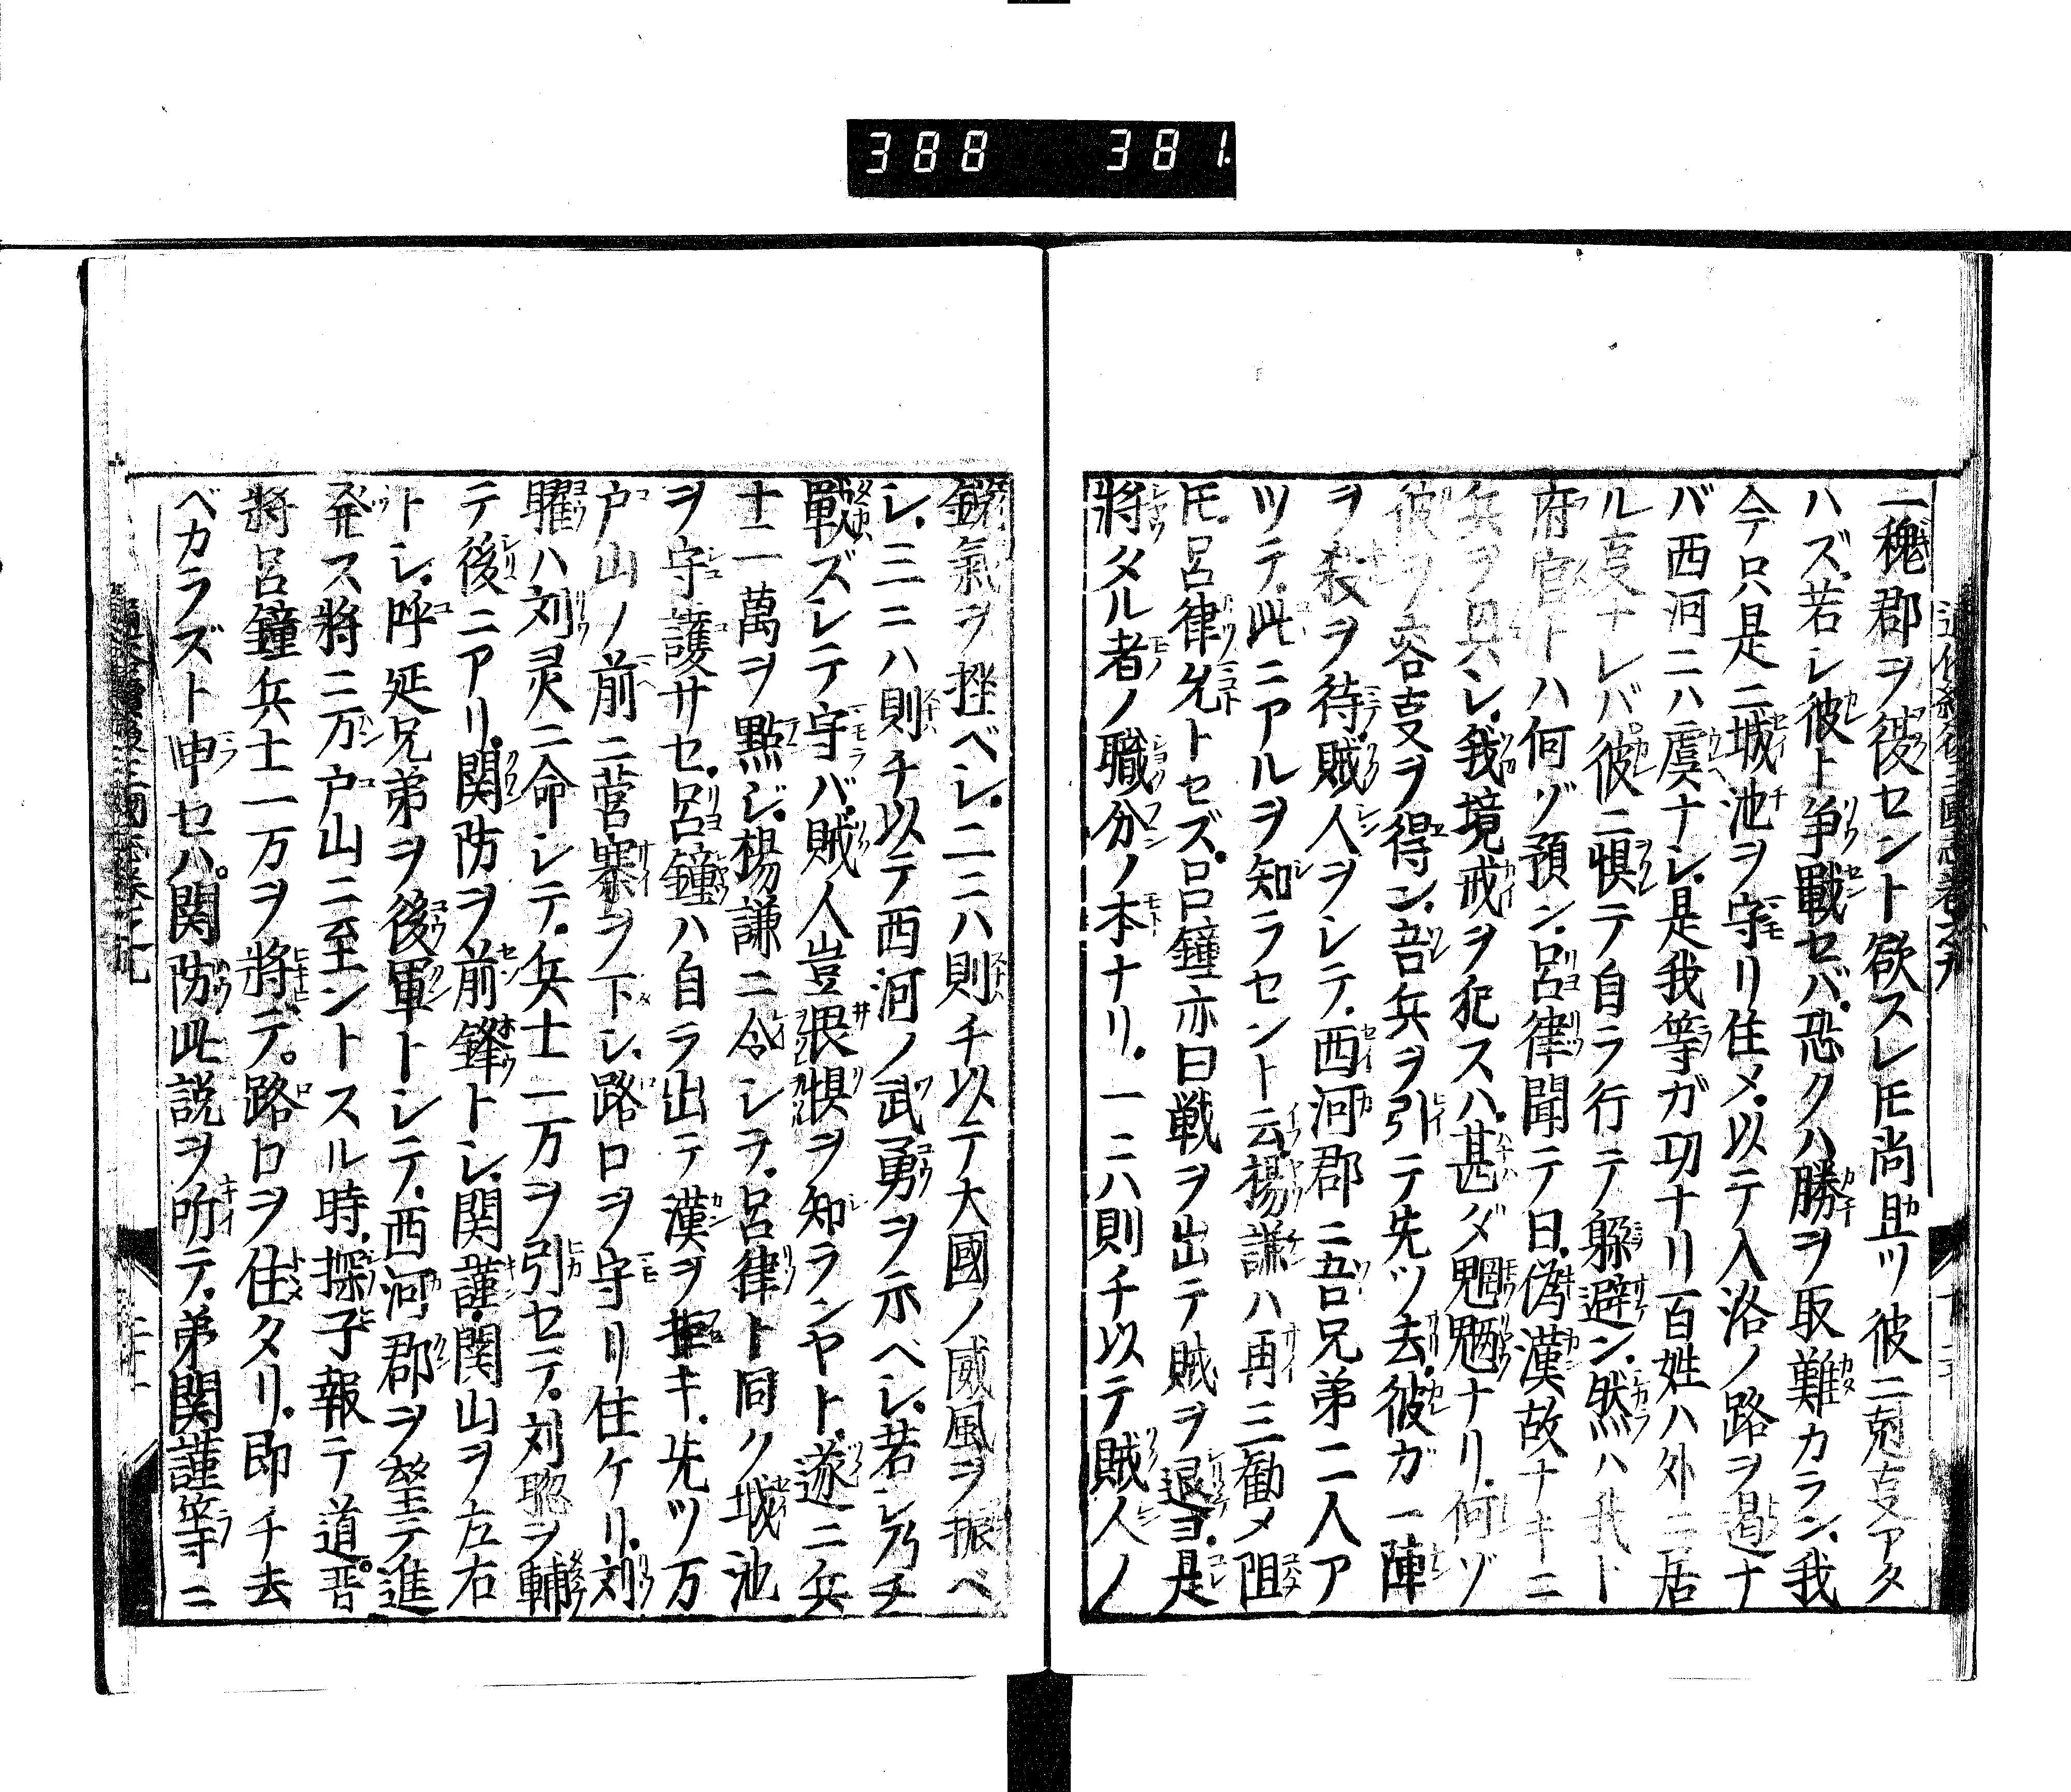 388 381
ニ魏郡ヲ復セント欲スレ𪜈尚且ツ彼ニ剋㕝アタ
ハズ若シ彼ト争戰セバ恐クハ勝ヲ取難カラン我
今只是ニ城池ヲ守リ住メ以テ入洛ノ路ヲ遏ナ
バ西河ニハ虞ナシ是我等ガ功ナリ百姓ハ外ニ居
ル㕝ナレバ彼ニ惧テ自ラ行テ躱避ン然ハ我ト
府官トハ何ゾ預ン呂律聞テ曰偽漢故ナキニ
兵ヲ具シ我境戒ヲ犯スハ甚ダ魍魎ナリ何ゾ
彼ヲ容㕝ヲ得ン吾兵ヲ引テ先ツ去彼ガ一陣
ヲ殺ヲ待賊人ヲシテ西河郡ニ吾兄弟二人ア
ツテ此ニアルヲ知ラセント云楊謙ハ再三勧メ阻
𪜈呂律允トセズ呂鐘亦曰戦ヲ出テ賊ヲ退ヨ是
將タル者ノ職分ノ本ナリ一ニハ則チ以テ賊人ノ
鋭氣ヲ挫ベシ二ニハ則チ以テ大國ノ威風ヲ振ベ
シ三ニハ則チ以テ西河ノ武勇ヲ示ベシ若シ乃チ
戰ズシテ守バ賊人豈畏惧ヲ知ランヤト遂ニ兵
士二萬ヲ點ジ楊謙ニ令シヲ呂律ト同ク城池
ヲ守護サセ呂鐘ハ自ラ出テ漢ヲ拒キ先ツ万
户山ノ前ニ営寨ヲ下シ路口ヲ守リ住ケリ刘
曜ハ刘灵ニ命シテ兵士二万ヲ引セテ刘聡ヲ輔
テ後ニアリ関防ヲ前鋒トシ関謹関山ヲ左右
トシ呼延兄弟ヲ後軍トシテ西河郡ヲ望テ進
発ス將ニ万户山ニ至ントスル時探子報テ道晋
將呂鐘兵士一万ヲ將テ路口ヲ住タリ即チ去
ベカラズト申セハ関防此説ヲ听テ弟関謹等ニ